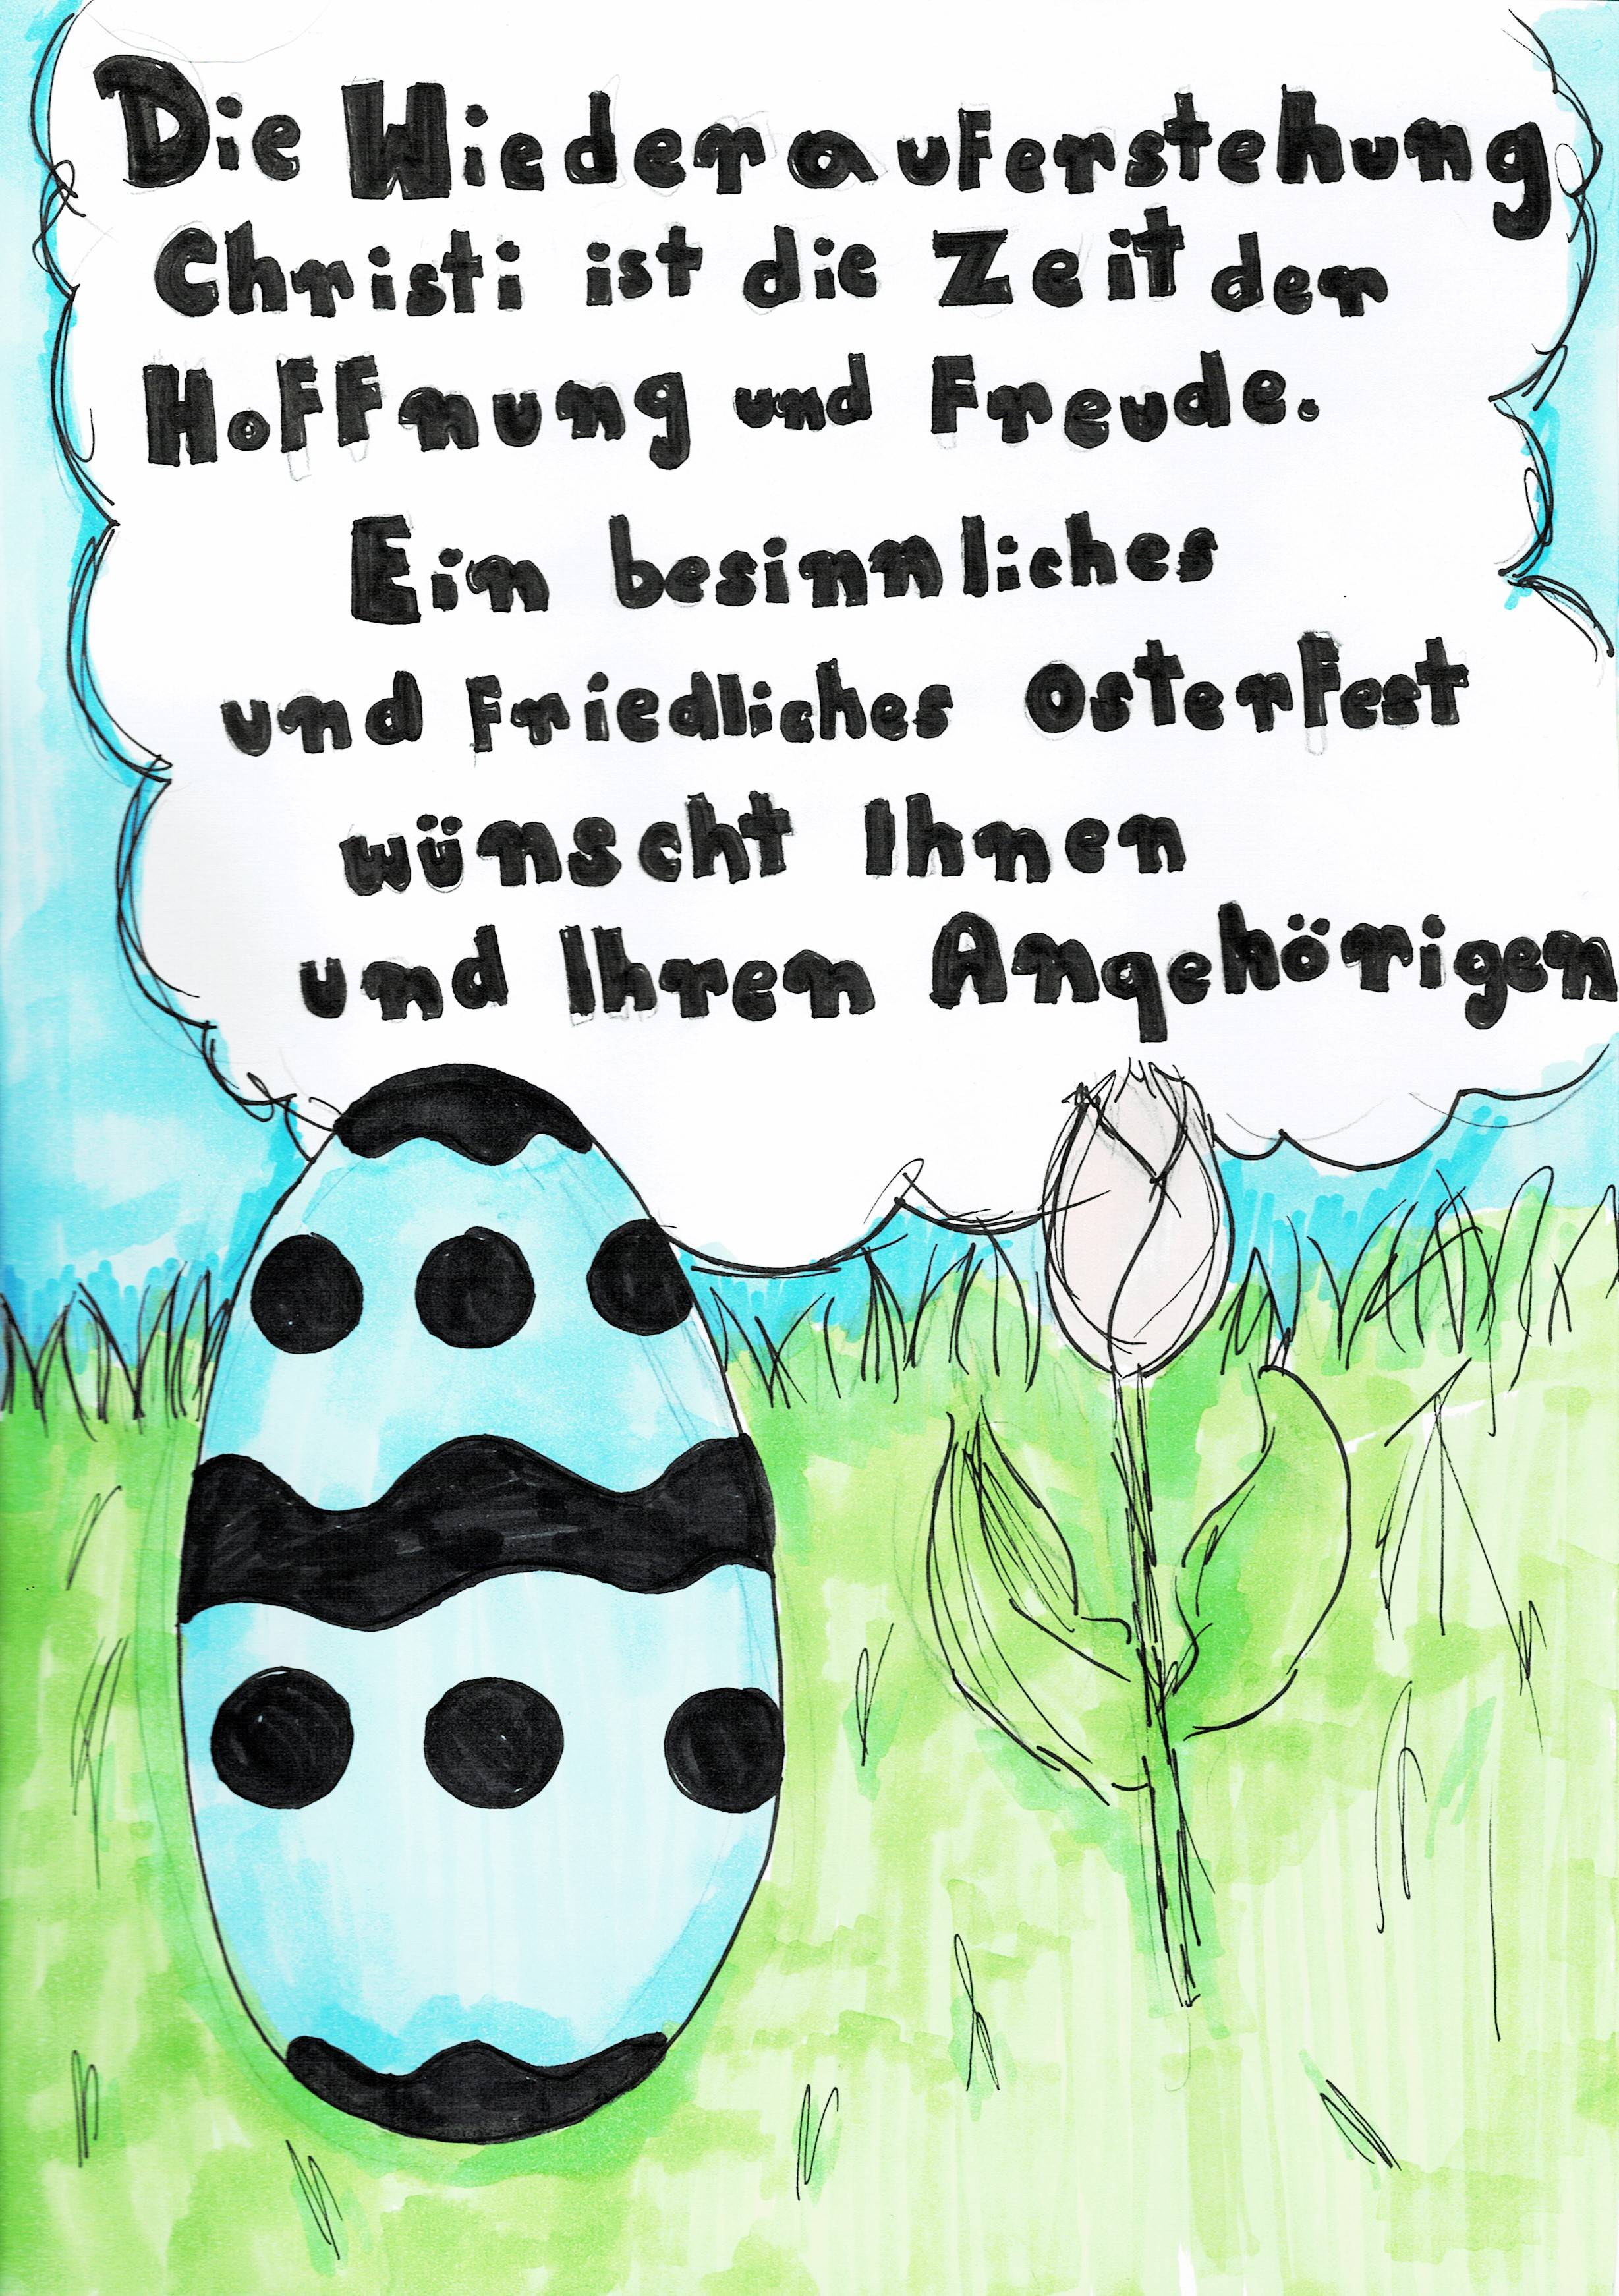 Die Wiederauferstehung
Christi ist die Zeit der
Hoffnung und Freude.
Ein besinnliches
und friedliches Osterfest
wünscht Ihnen
und Ihren Angehörigen